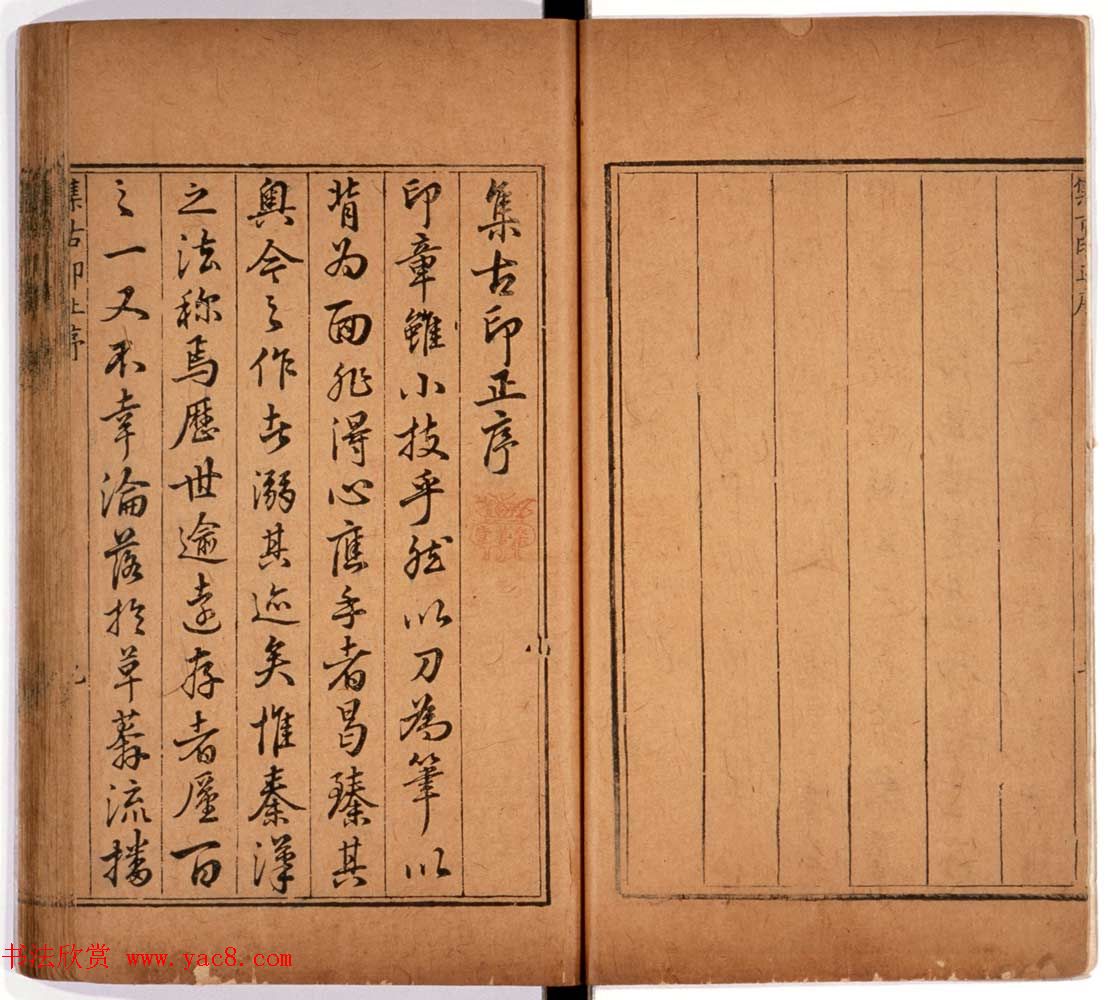 集古印正序
印章雖小技乎然以刀為筆以
背为面非得心應手者曷臻其
奧今之作者溺其迹矣惟秦漢
之法称焉歷世逾遠存者厪百
之一又不幸淪落於草莽流播
集古印正序
書法欣赏 www.yac8.com